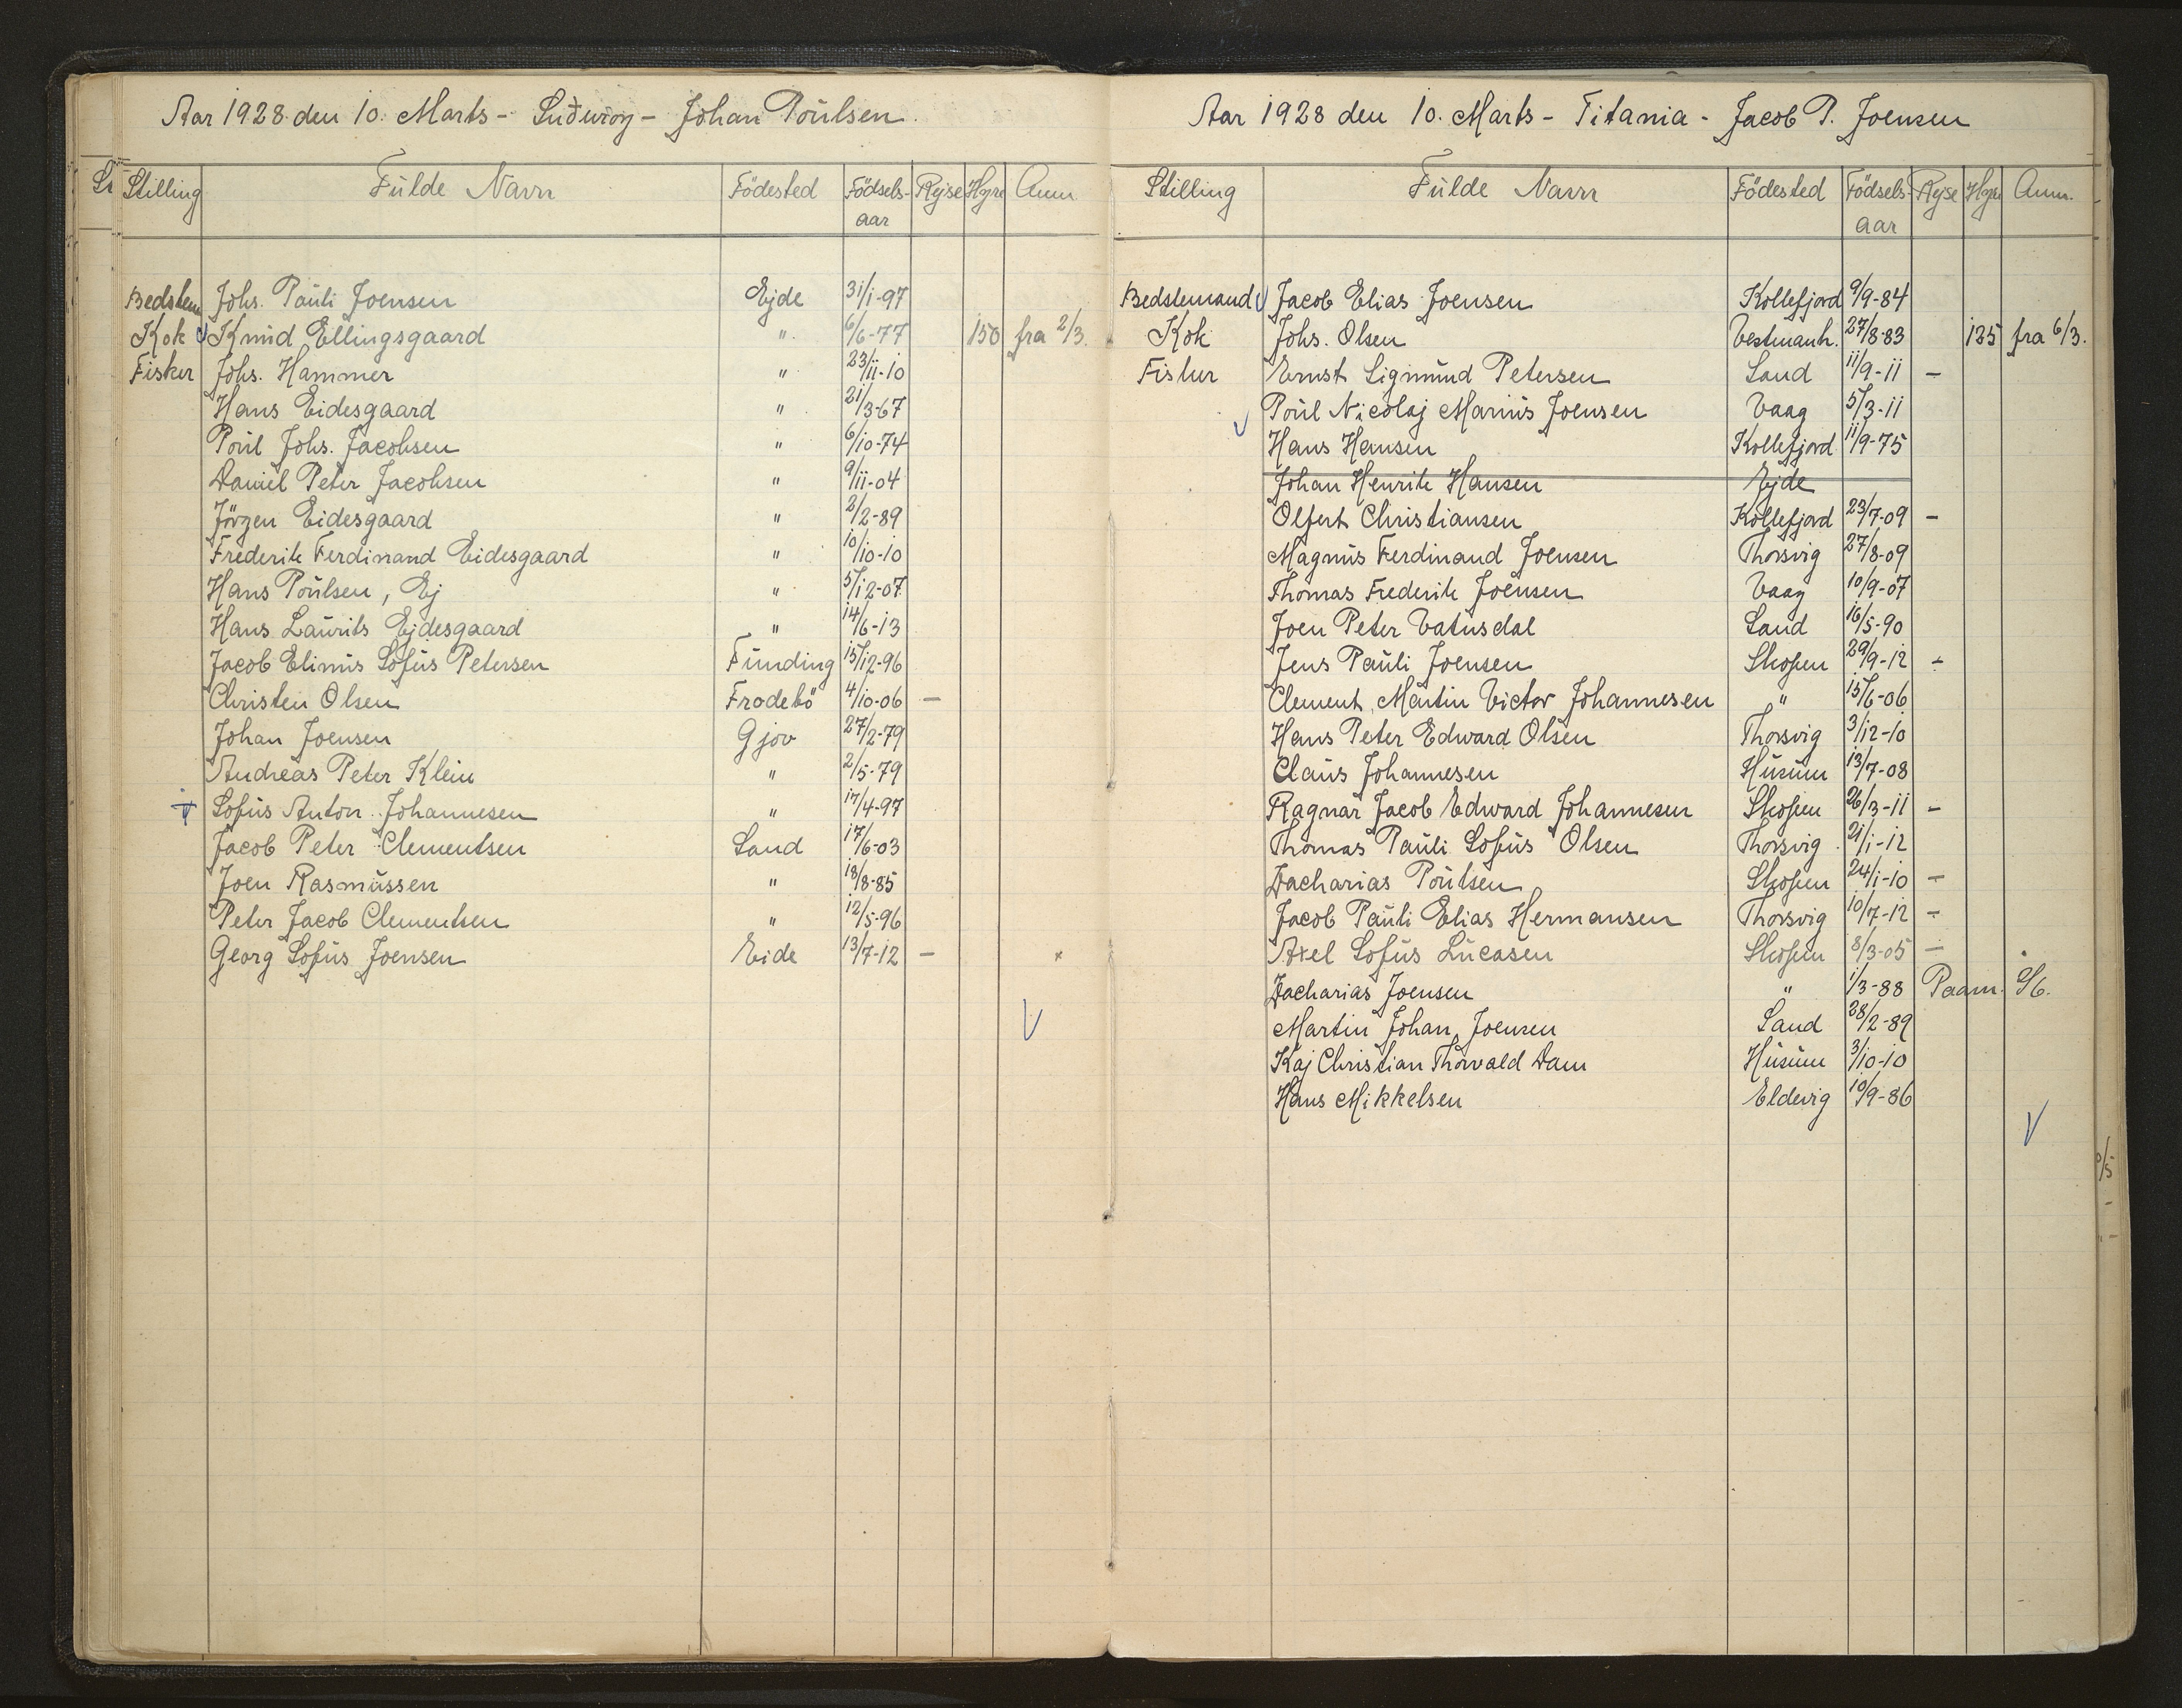 Aar 1928 den 10. Marts - Ludwig - Johan Poulsen.
Stilling Fulde Navn Födested Födsels-aar Rejse Hyre Anm.
Bedstem Johs. Pauli Joensen Ejde 31/1-97
Kok Knud Ellingsgaard " 6/6-77 150 fra 2/3.
Fisker Johs. Hammer " 23/11-10
Hans Eidesgaard " 21/3-67
Poul Johs. Jacobsen " 6/10-74
Daniel Peter Jacobsen " 9/11-04
Jörgen Eidesgaard " 2/2-89
Frederik Ferdinand Eidesgaard " 10/10-10
Hans Poulsen, Ej " 5/12-07
Hans Laurits Ejdesgaard " 14/6-13
Jacob Elinus Sofus Petersen Funding 15/12-96
Christen Olsen Frodebö 4/10-06 -
Johan Joensen Gjov 27/2-79
Andreas Peter Klein " 2/5-79
Sofus Anton Johannesen " 17/4-97
Jacob Peter Clementsen Sand 17/6-03
Joen Rasmussen " 18/8-85
Peter Jacob Clementsen " 12/5-96
Georg Sofus Joensen Eide 13/7-12 -
Aar 1928 den 10. Marts - Titania - Jacob P. Joensen
Stilling Fulde Navn Födested Födsels-aar Rejse Hyre Anm.
Bedstemand Jacob Elias Joensen Kollefjord 9/9-84
Kok Johs. Olsen Vestmanh. 27/8-83 125 fra 6/3.
Fisker Ernst Sigmund Petersen Sand 11/9-11 -
Poul Nicolaj Marius Joensen Vaag 5/3-11
Hans Hansen Kollefjord 11/9-75
Johan Henrik Hansen Ejde
Olfert Christiansen Kollefjord 23/7-09 -
Magnus Ferdinand Joensen Thorsvig 27/8-09
Thomas Frederik Joensen Vaag 10/9-07
Joen Peter Vatnsdal Sand 16/5-90
Jens Pauli Joensen Skopen 29/9-12 -
Clement Martin Victor Johannesen " 15/6-06
Hans Peter Edward Olsen Thorsvig 3/12-10
Claus Johannesen Husum 13/7-08
Ragnar Jacob Edward Johannesen Skopen 26/3-11 -
Thomas Pauli Sofus Olsen Thorsvig 21/1-12
Zacharias Poulsen Skopen 24/1-10 -
Jacob Pauli Elias Hermansen Thorsvig 10/7-12 -
Axel Sofus Lucasen Skopen 8/3-05 -
Zacharias Joensen " 1/3-88 Paam. 9/6.
Martin Johan Joensen Sand 28/2-89
Kaj Christian Thorvald Dam Husum 3/10-10
Hans Mikkelsen Eldevig 10/9-86